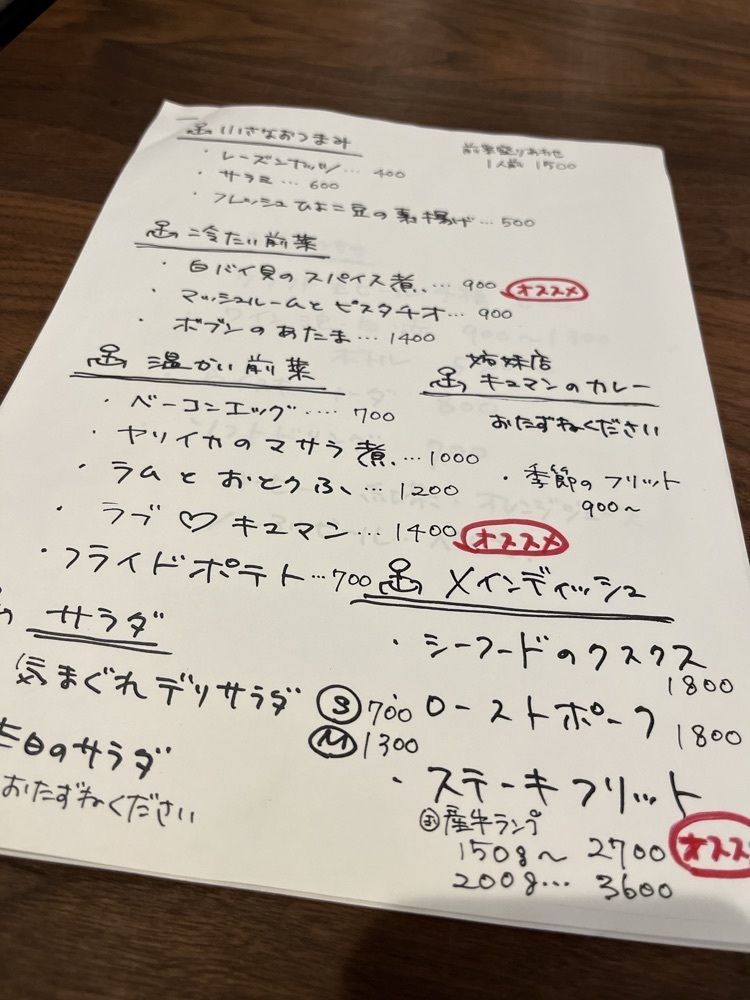 小さなおつまみ
・レーズンナッツ… 400
・サラミ… 600
・フレッシュひよこ豆の素揚げ… 500
前菜盛りあわせ
1人前 1500
冷たい前菜
・白バイ貝のスパイス煮… 900 オススメ
・マッシュルームとピスタチオ… 900
・ボブンのあたま… 1400
温かい前菜
・ベーコンエッグ…. 700
・ヤリイカのマサラ煮… 1000
・ラムとおとうふ… 1200
・ラブ♡キュマン… 1400 オススメ
・フライドポテト… 700
姉妹店
キュマンのカレー
おたずねください
・季節のフリット
900〜
サラダ
気まぐれデリサラダ Ⓢ 700
Ⓜ 1300
白のサラダ
おたずねください
メインディッシュ
・シーフードのクスクス
1800
・ローストポーク 1800
・ステーキフリット
産牛ランプ
150g〜 2700 オスス
200g… 3600